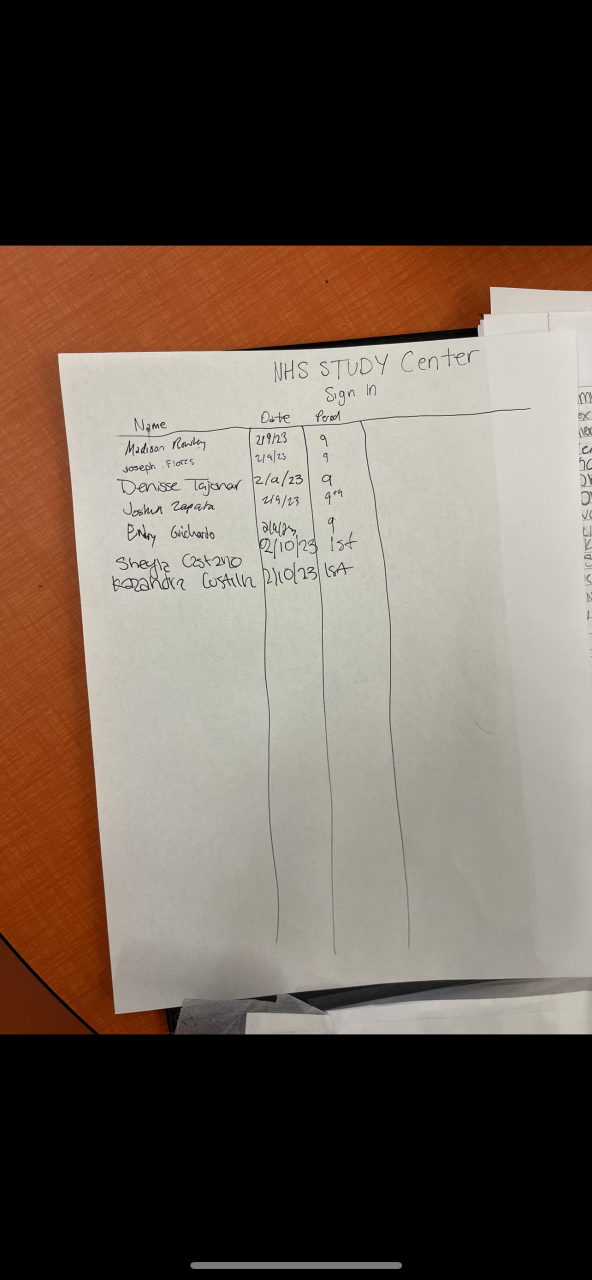 NHS STUDY Center
Sign In
Name Date Period
Madison 2/9/23 9
Joseph Flores 2/9/23 9
Denisse Tajonar 2/9/23 9
Joshua Zapata 2/9/23 9th
9
Sheyla Castano 02/10/23 1st
Kazandra Custilla 2/10/23 1st